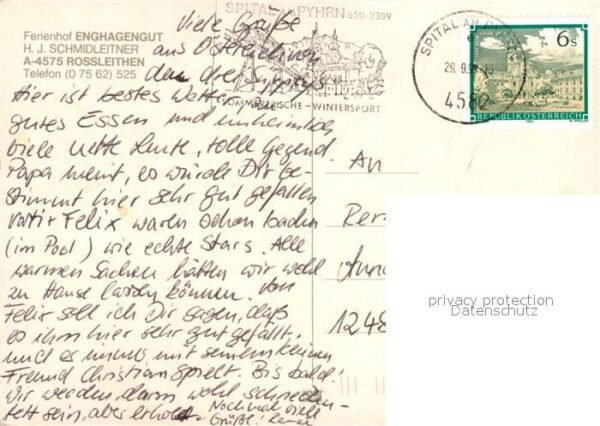 Ferienhof ENGHAGENGUT
H. J. SCHMIDLEITNER
A-4575 ROSSLEITHEN
Telefon (0 75 62) 525
SPITAL AM PYHRN 650-2389
SOMMERFRISCHE-WINTERSPORT
SPITAL AM
29. 9.
4582
6 S
REPUBLIK ÖSTERREICH
Viele Grüße
aus Österreich von
den drei
Hier ist bestes Wetter
gutes Essen und unheimlich
viele nette Leute, tolle Gegend.
Papa meint, es würde Dir be-
stimmt hier sehr gut gefallen
Felix waren schon baden
(im Pool) wie echte Stars. Alle
warmen Sachen hätten wir wohl
zu Hause lassen können. Von
Felix soll ich Dir sagen, daß
es ihm hier sehr gut gefällt,
und er immer mit seinem kleinen
Freund Christian spielt. Bis bald!
Wir werden dann wohl
sein, aber erholt.
Nochmal viele
Grüße!
An
1248
privacy protection
Datenschutz